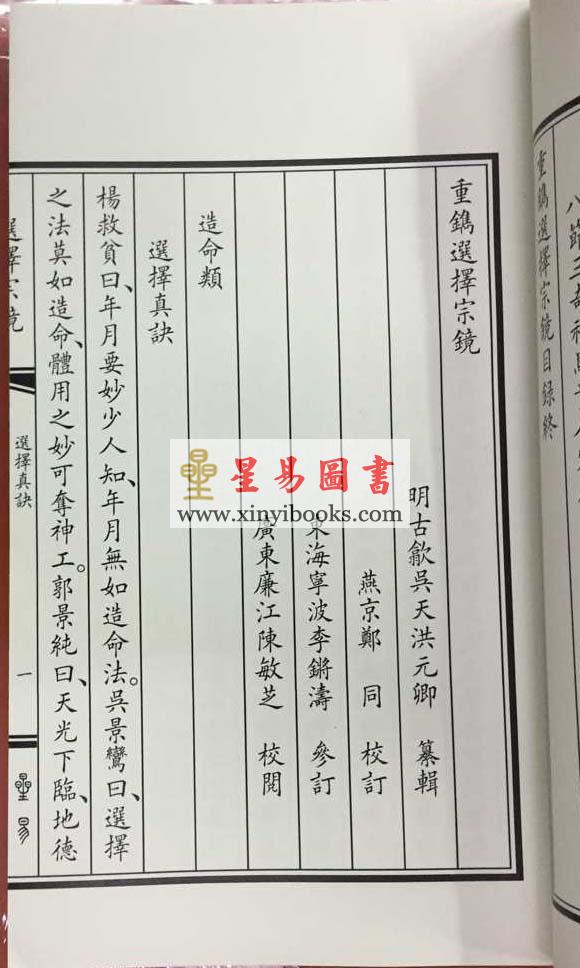 八節三奇
重鐫選擇宗鏡目録終
重鐫選擇宗鏡
明古歙吳天洪元卿 纂輯
燕京鄭 同 校訂
東海寧波李鏘濤 參訂
廣東廉江陳敏芝 校閱
造命類
選擇真訣
楊救貧曰、年月要妙少人知、年月無如造命法。吳景鸞曰、選擇
之法莫如造命、體用之妙可奪神工。郭景純曰、天光下臨、地德
選擇宗鏡
選擇真訣
一
星易
星易圖書
www.xinyibooks.com